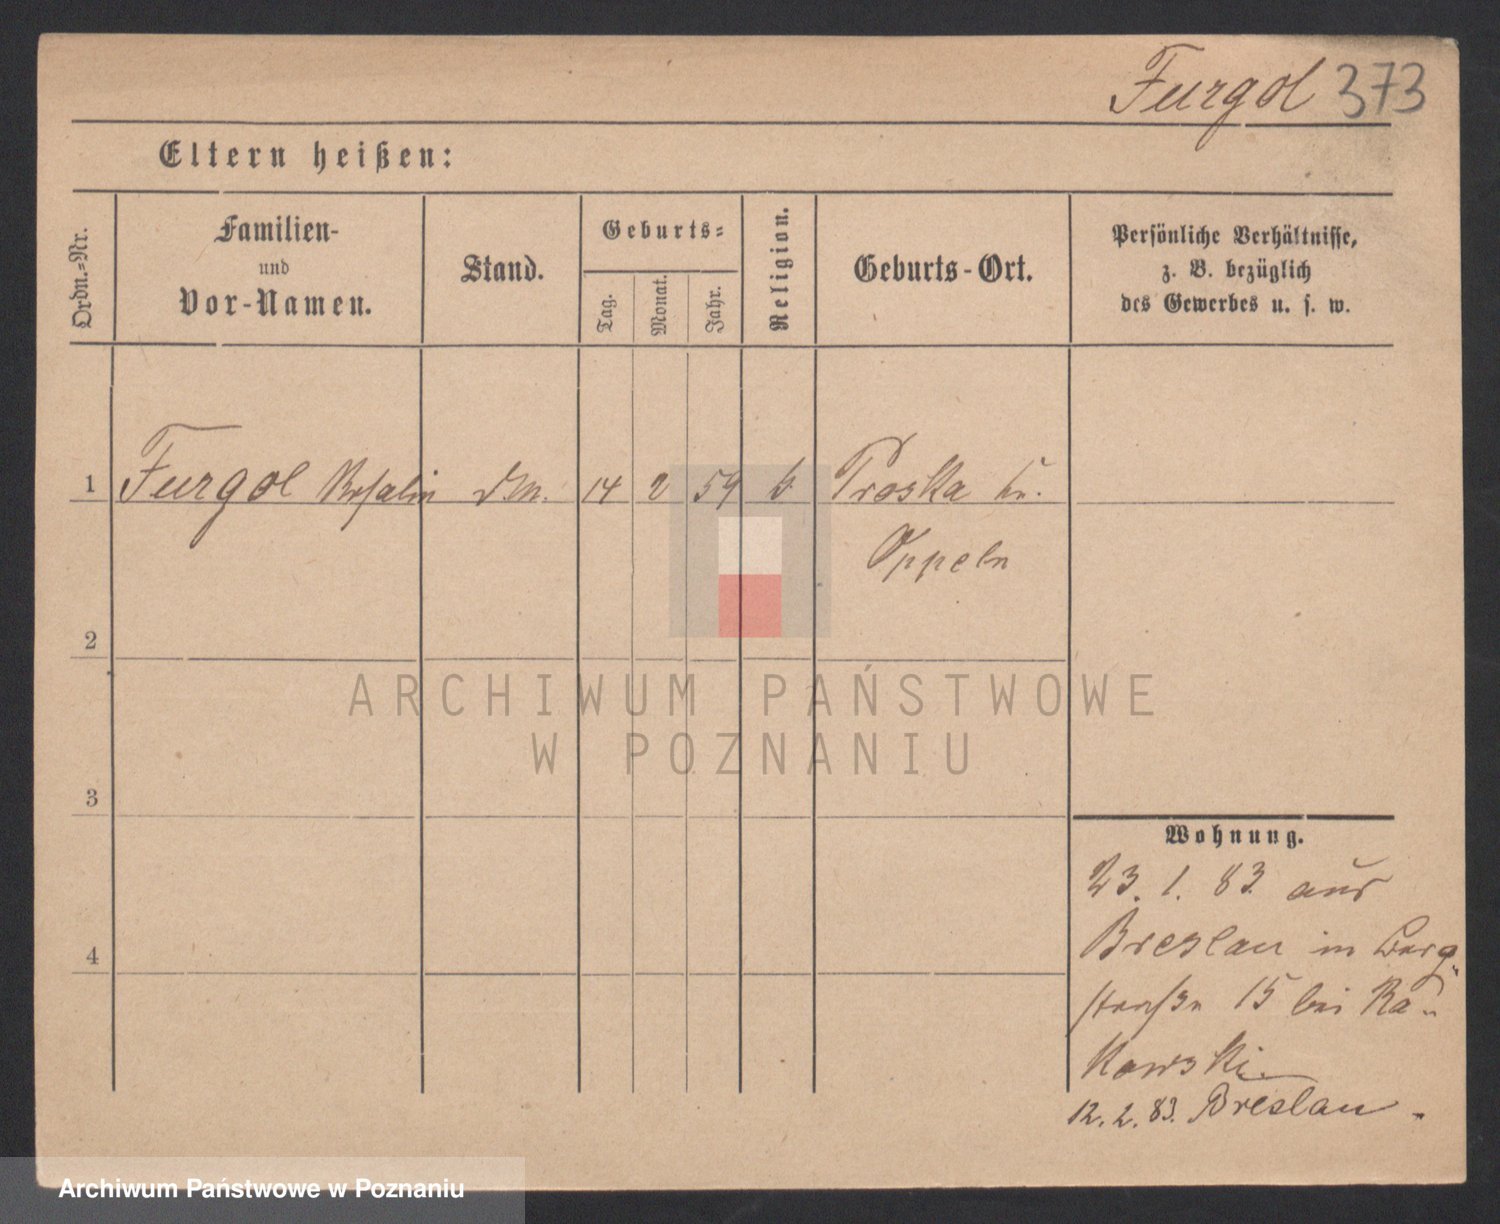 Furgol 373
Eltern heißen:
Ordn.=Nr.
Familien-
und
Vor-Namen.
Stand.
Geburts=
Tag.
Monat.
Jahr.
Religion.
Geburts-Ort.
Persönliche Verhältnisse,
z. B. bezüglich
des Gewerbes u. s. w.
1 Furgol Rosalie 14 2 59 k. Proska
Oppeln
2
3
4
Wohnung.
23. 1. 83 aus
Breslau in Berg
straße 15 bei Ra-
kowski.
12. 2. 83. Breslau.
ARCHIWUM PAŃSTWOWE
W POZNANIU
Archiwum Państwowe w Poznaniu